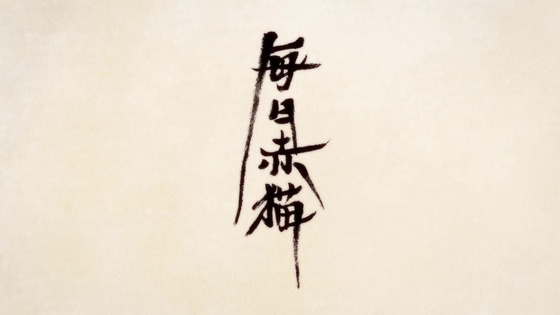 毎日赤猫